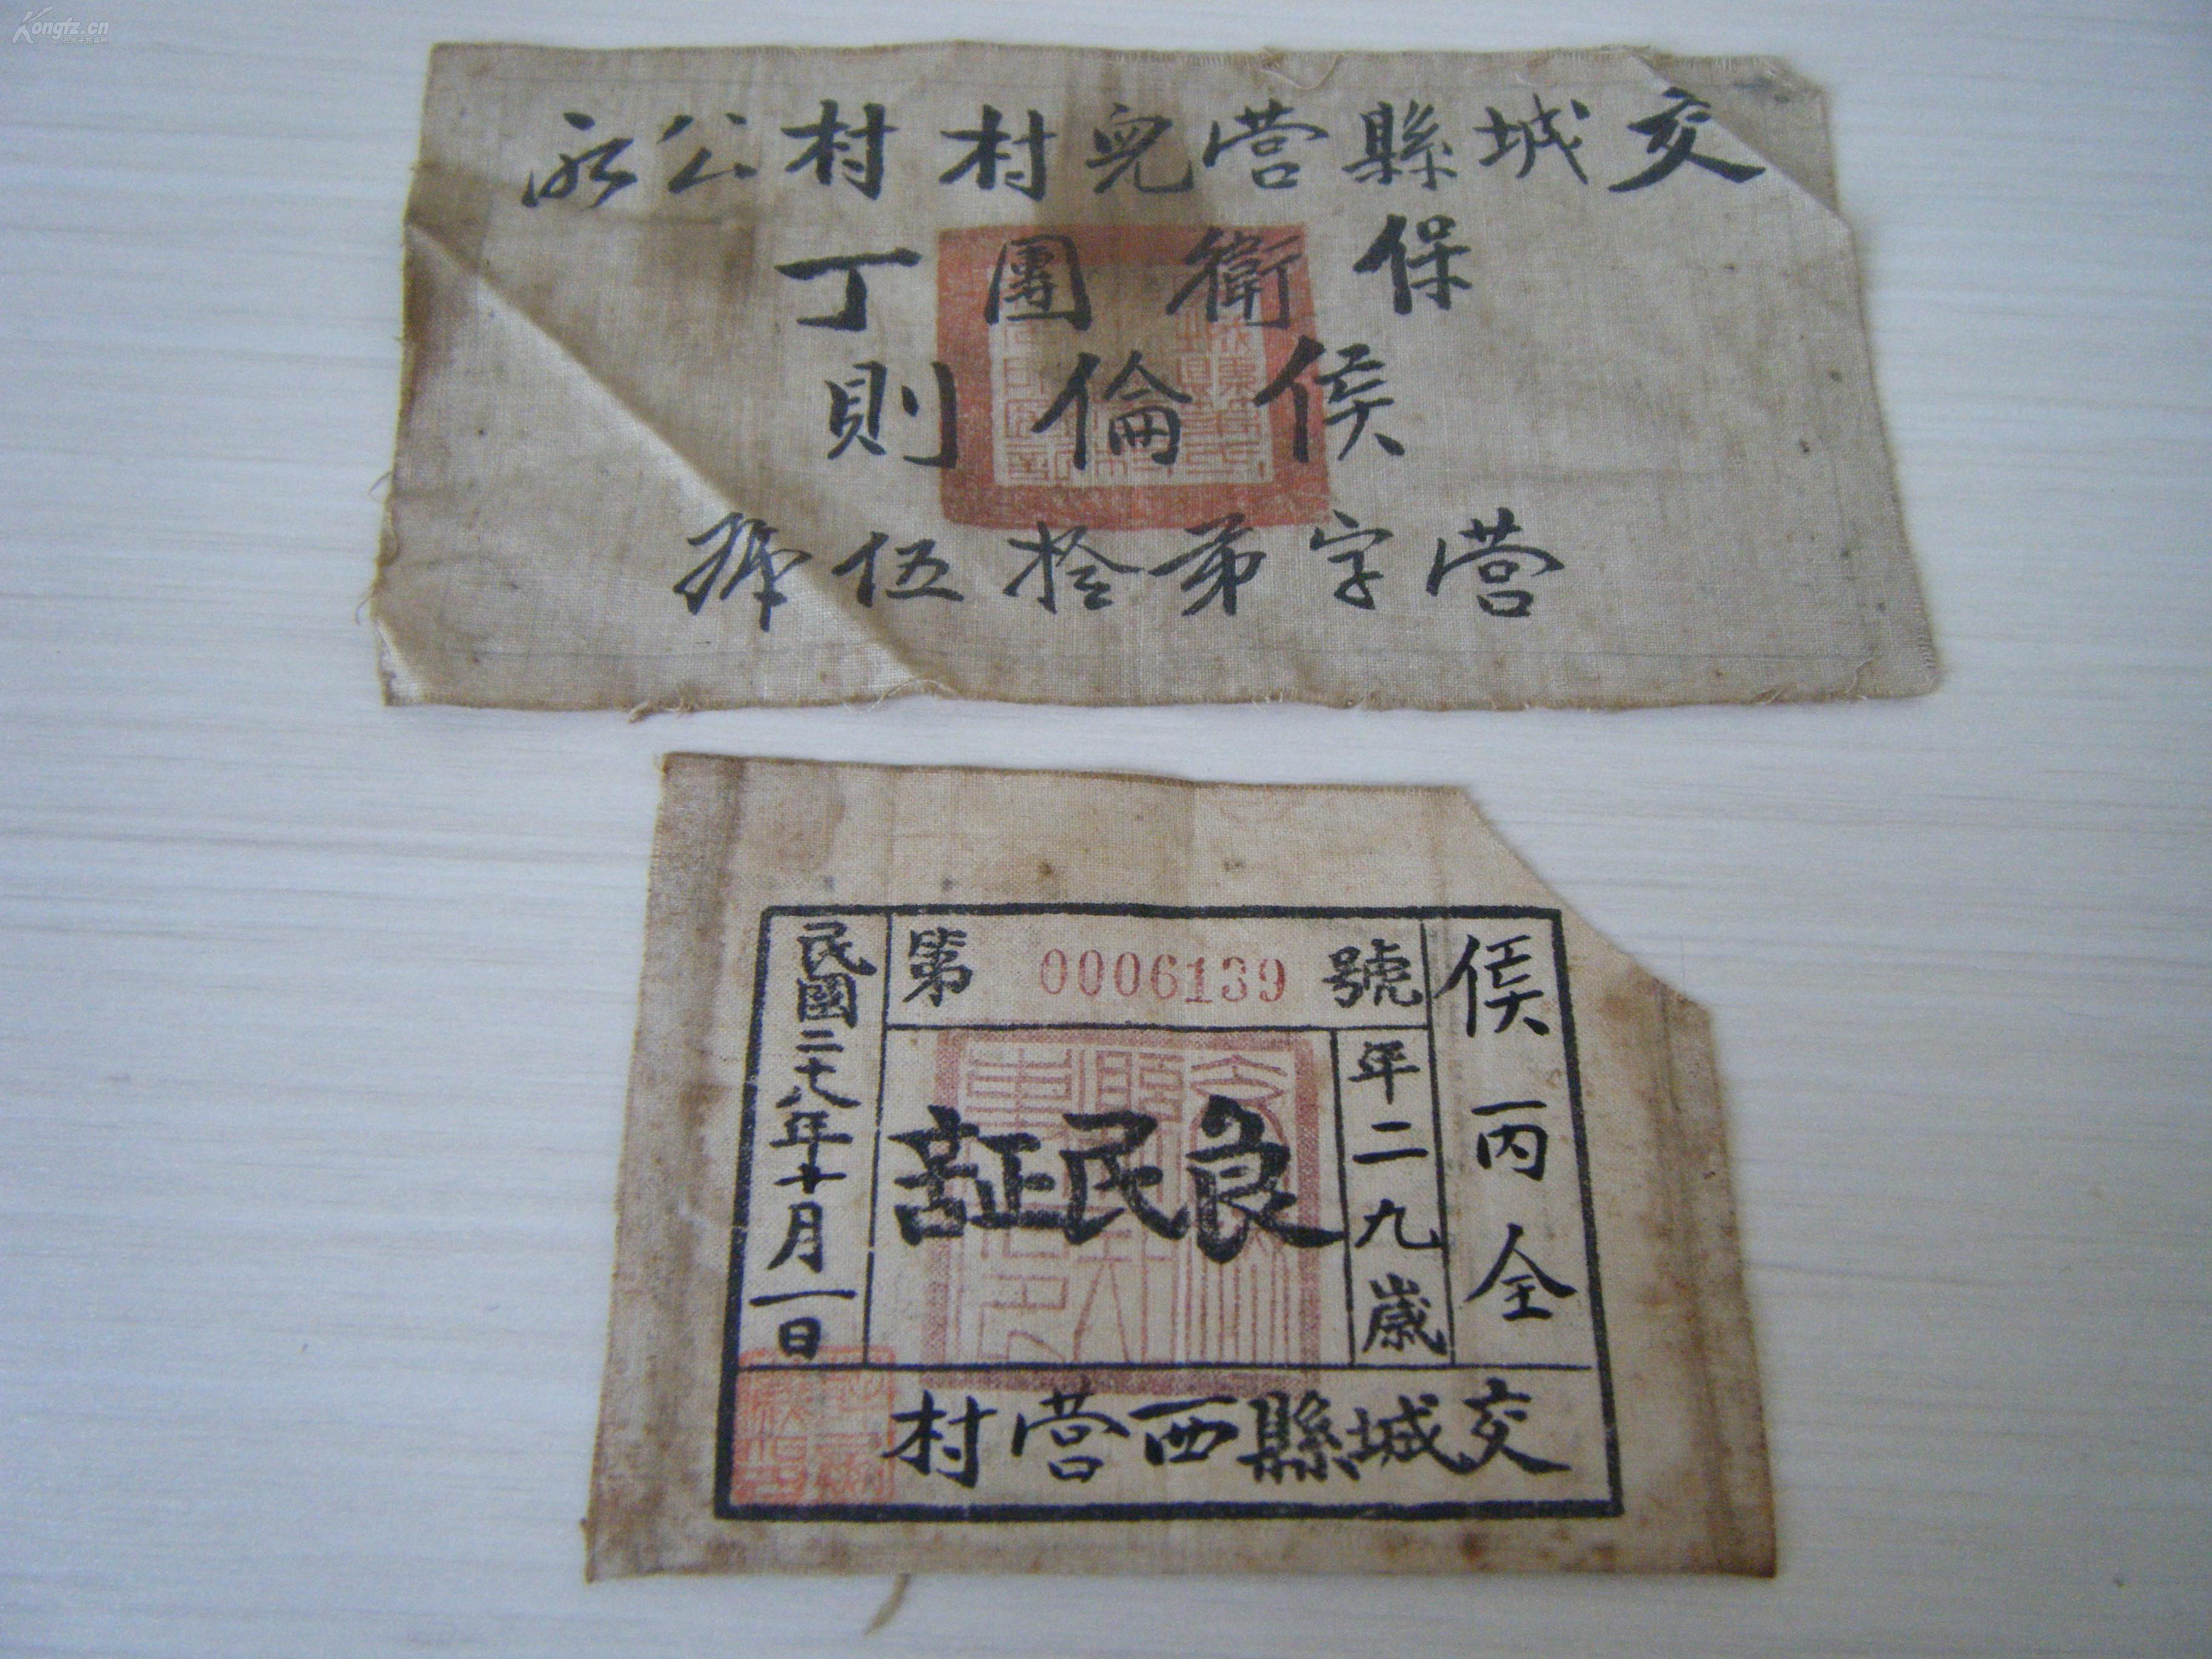 Kongfz.cn
交城縣营兒村村公所
保衛團丁
侯倫則
营字第拾伍號
侯丙全
年二九歲
第 0006139 號
良民証
民國二十八年十月一日
交城縣西营村